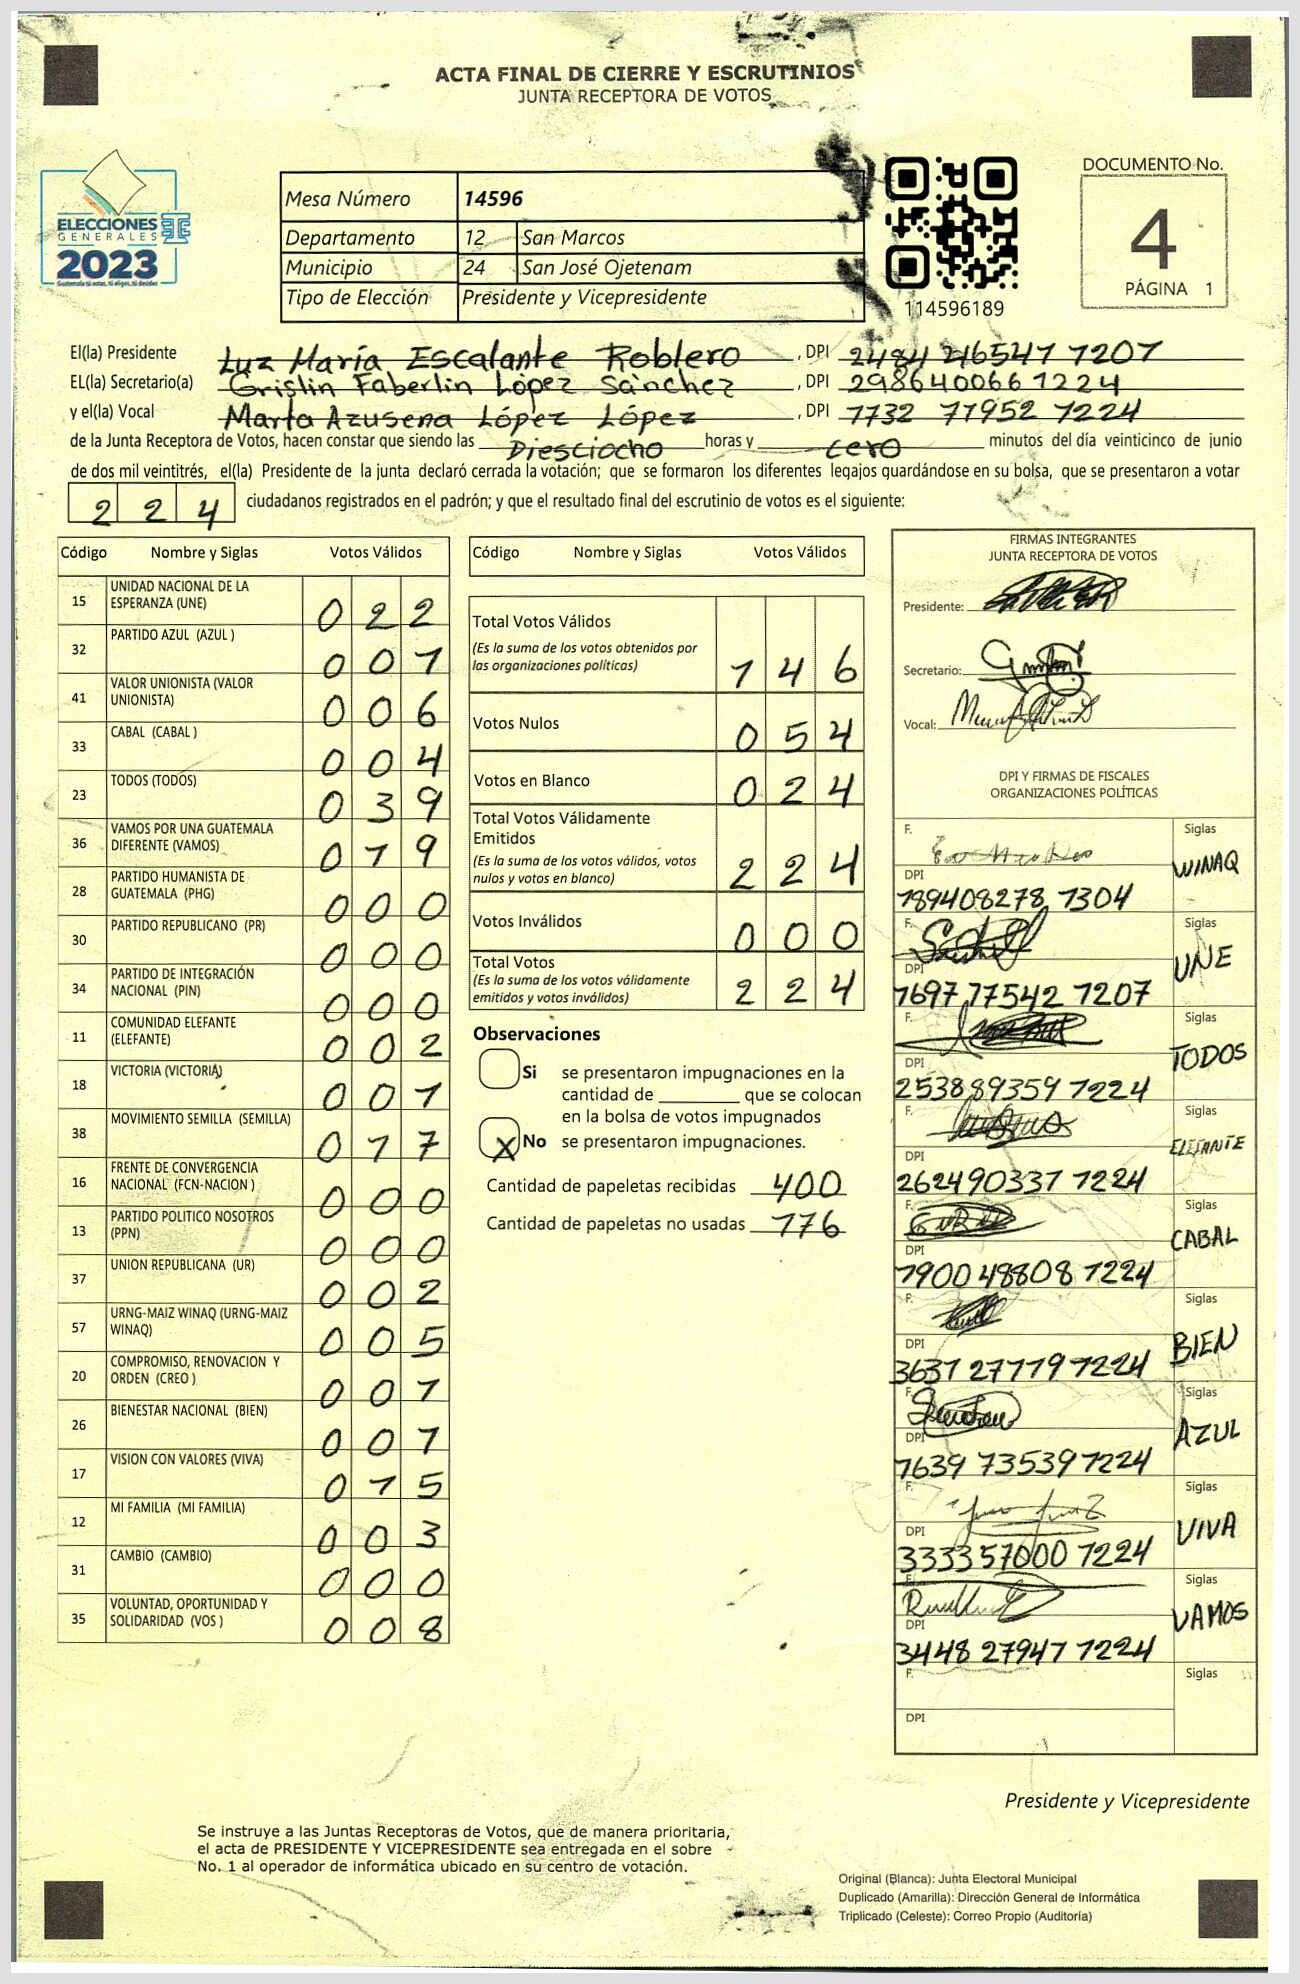 ACTA FINAL DE CIERRE Y ESCRUTINIOS
JUNTA RECEPTORA DE VOTOS
ELECCIONES
GENERALES
2023
Guatemala tú votas, tú eliges, tú decides
Mesa Número 14596
Departamento 12 San Marcos
Municipio 24 San José Ojetenam
Tipo de Elección Presidente y Vicepresidente
114596189
DOCUMENTO No.
4
PÁGINA 1
El(la) Presidente Luz María Escalante Roblero , DPI 2484 26547 1207
EL(la) Secretario(a) Grislin Faberlin López Sánchez , DPI 298640066 1224
y el(la) Vocal Marta Azusena López López , DPI 1732 11952 1224
de la Junta Receptora de Votos, hacen constar que siendo las Diesciocho horas y cero minutos del día veinticinco de junio
de dos mil veintitrés, el(la) Presidente de la junta declaró cerrada la votación; que se formaron los diferentes legajos guardándose en su bolsa, que se presentaron a votar
224 ciudadanos registrados en el padrón; y que el resultado final del escrutinio de votos es el siguiente:
Código Nombre y Siglas Votos Válidos
15 UNIDAD NACIONAL DE LA ESPERANZA (UNE) 022
32 PARTIDO AZUL (AZUL ) 001
41 VALOR UNIONISTA (VALOR UNIONISTA) 006
33 CABAL (CABAL ) 004
23 TODOS (TODOS) 039
36 VAMOS POR UNA GUATEMALA DIFERENTE (VAMOS) 019
28 PARTIDO HUMANISTA DE GUATEMALA (PHG) 000
30 PARTIDO REPUBLICANO (PR) 000
34 PARTIDO DE INTEGRACIÓN NACIONAL (PIN) 000
11 COMUNIDAD ELEFANTE (ELEFANTE) 002
18 VICTORIA (VICTORIA) 001
38 MOVIMIENTO SEMILLA (SEMILLA) 017
16 FRENTE DE CONVERGENCIA NACIONAL (FCN-NACION ) 000
13 PARTIDO POLITICO NOSOTROS (PPN) 000
37 UNION REPUBLICANA (UR) 002
57 URNG-MAIZ WINAQ (URNG-MAIZ WINAQ) 005
20 COMPROMISO, RENOVACION Y ORDEN (CREO ) 001
26 BIENESTAR NACIONAL (BIEN) 001
17 VISION CON VALORES (VIVA) 015
12 MI FAMILIA (MI FAMILIA) 003
31 CAMBIO (CAMBIO) 000
35 VOLUNTAD, OPORTUNIDAD Y SOLIDARIDAD (VOS ) 008
Código Nombre y Siglas Votos Válidos
Total Votos Válidos 146
(Es la suma de los votos obtenidos por
las organizaciones políticas)
Votos Nulos 054
Votos en Blanco 024
Total Votos Válidamente
Emitidos 224
(Es la suma de los votos válidos, votos
nulos y votos en blanco)
Votos Inválidos 000
Total Votos 224
(Es la suma de los votos válidamente
emitidos y votos inválidos)
Observaciones
Si se presentaron impugnaciones en la
cantidad de ________ que se colocan
en la bolsa de votos impugnados
X No se presentaron impugnaciones.
Cantidad de papeletas recibidas 400
Cantidad de papeletas no usadas 176
FIRMAS INTEGRANTES
JUNTA RECEPTORA DE VOTOS
Presidente:
Secretario:
Vocal:
DPI Y FIRMAS DE FISCALES
ORGANIZACIONES POLÍTICAS
F. Siglas
DPI WINAQ
189408278 1304
F. Siglas
DPI UNE
1697 17542 1207
F. Siglas
DPI TODOS
253889359 1224
F. Siglas
DPI ELEFANTE
262490337 1224
F. Siglas
DPI CABAL
1900 48808 1224
F. Siglas
DPI BIEN
3631 27779 1224
F. Siglas
DPI AZUL
1639 73539 1224
F. Siglas
DPI VIVA
333357000 1224
F. Siglas
DPI VAMOS
3448 27947 1224
F. Siglas
DPI
Presidente y Vicepresidente
Se instruye a las Juntas Receptoras de Votos, que de manera prioritaria,
el acta de PRESIDENTE Y VICEPRESIDENTE sea entregada en el sobre
No. 1 al operador de informática ubicado en su centro de votación.
Original (Blanca): Junta Electoral Municipal
Duplicado (Amarilla): Dirección General de Informática
Triplicado (Celeste): Correo Propio (Auditoría)